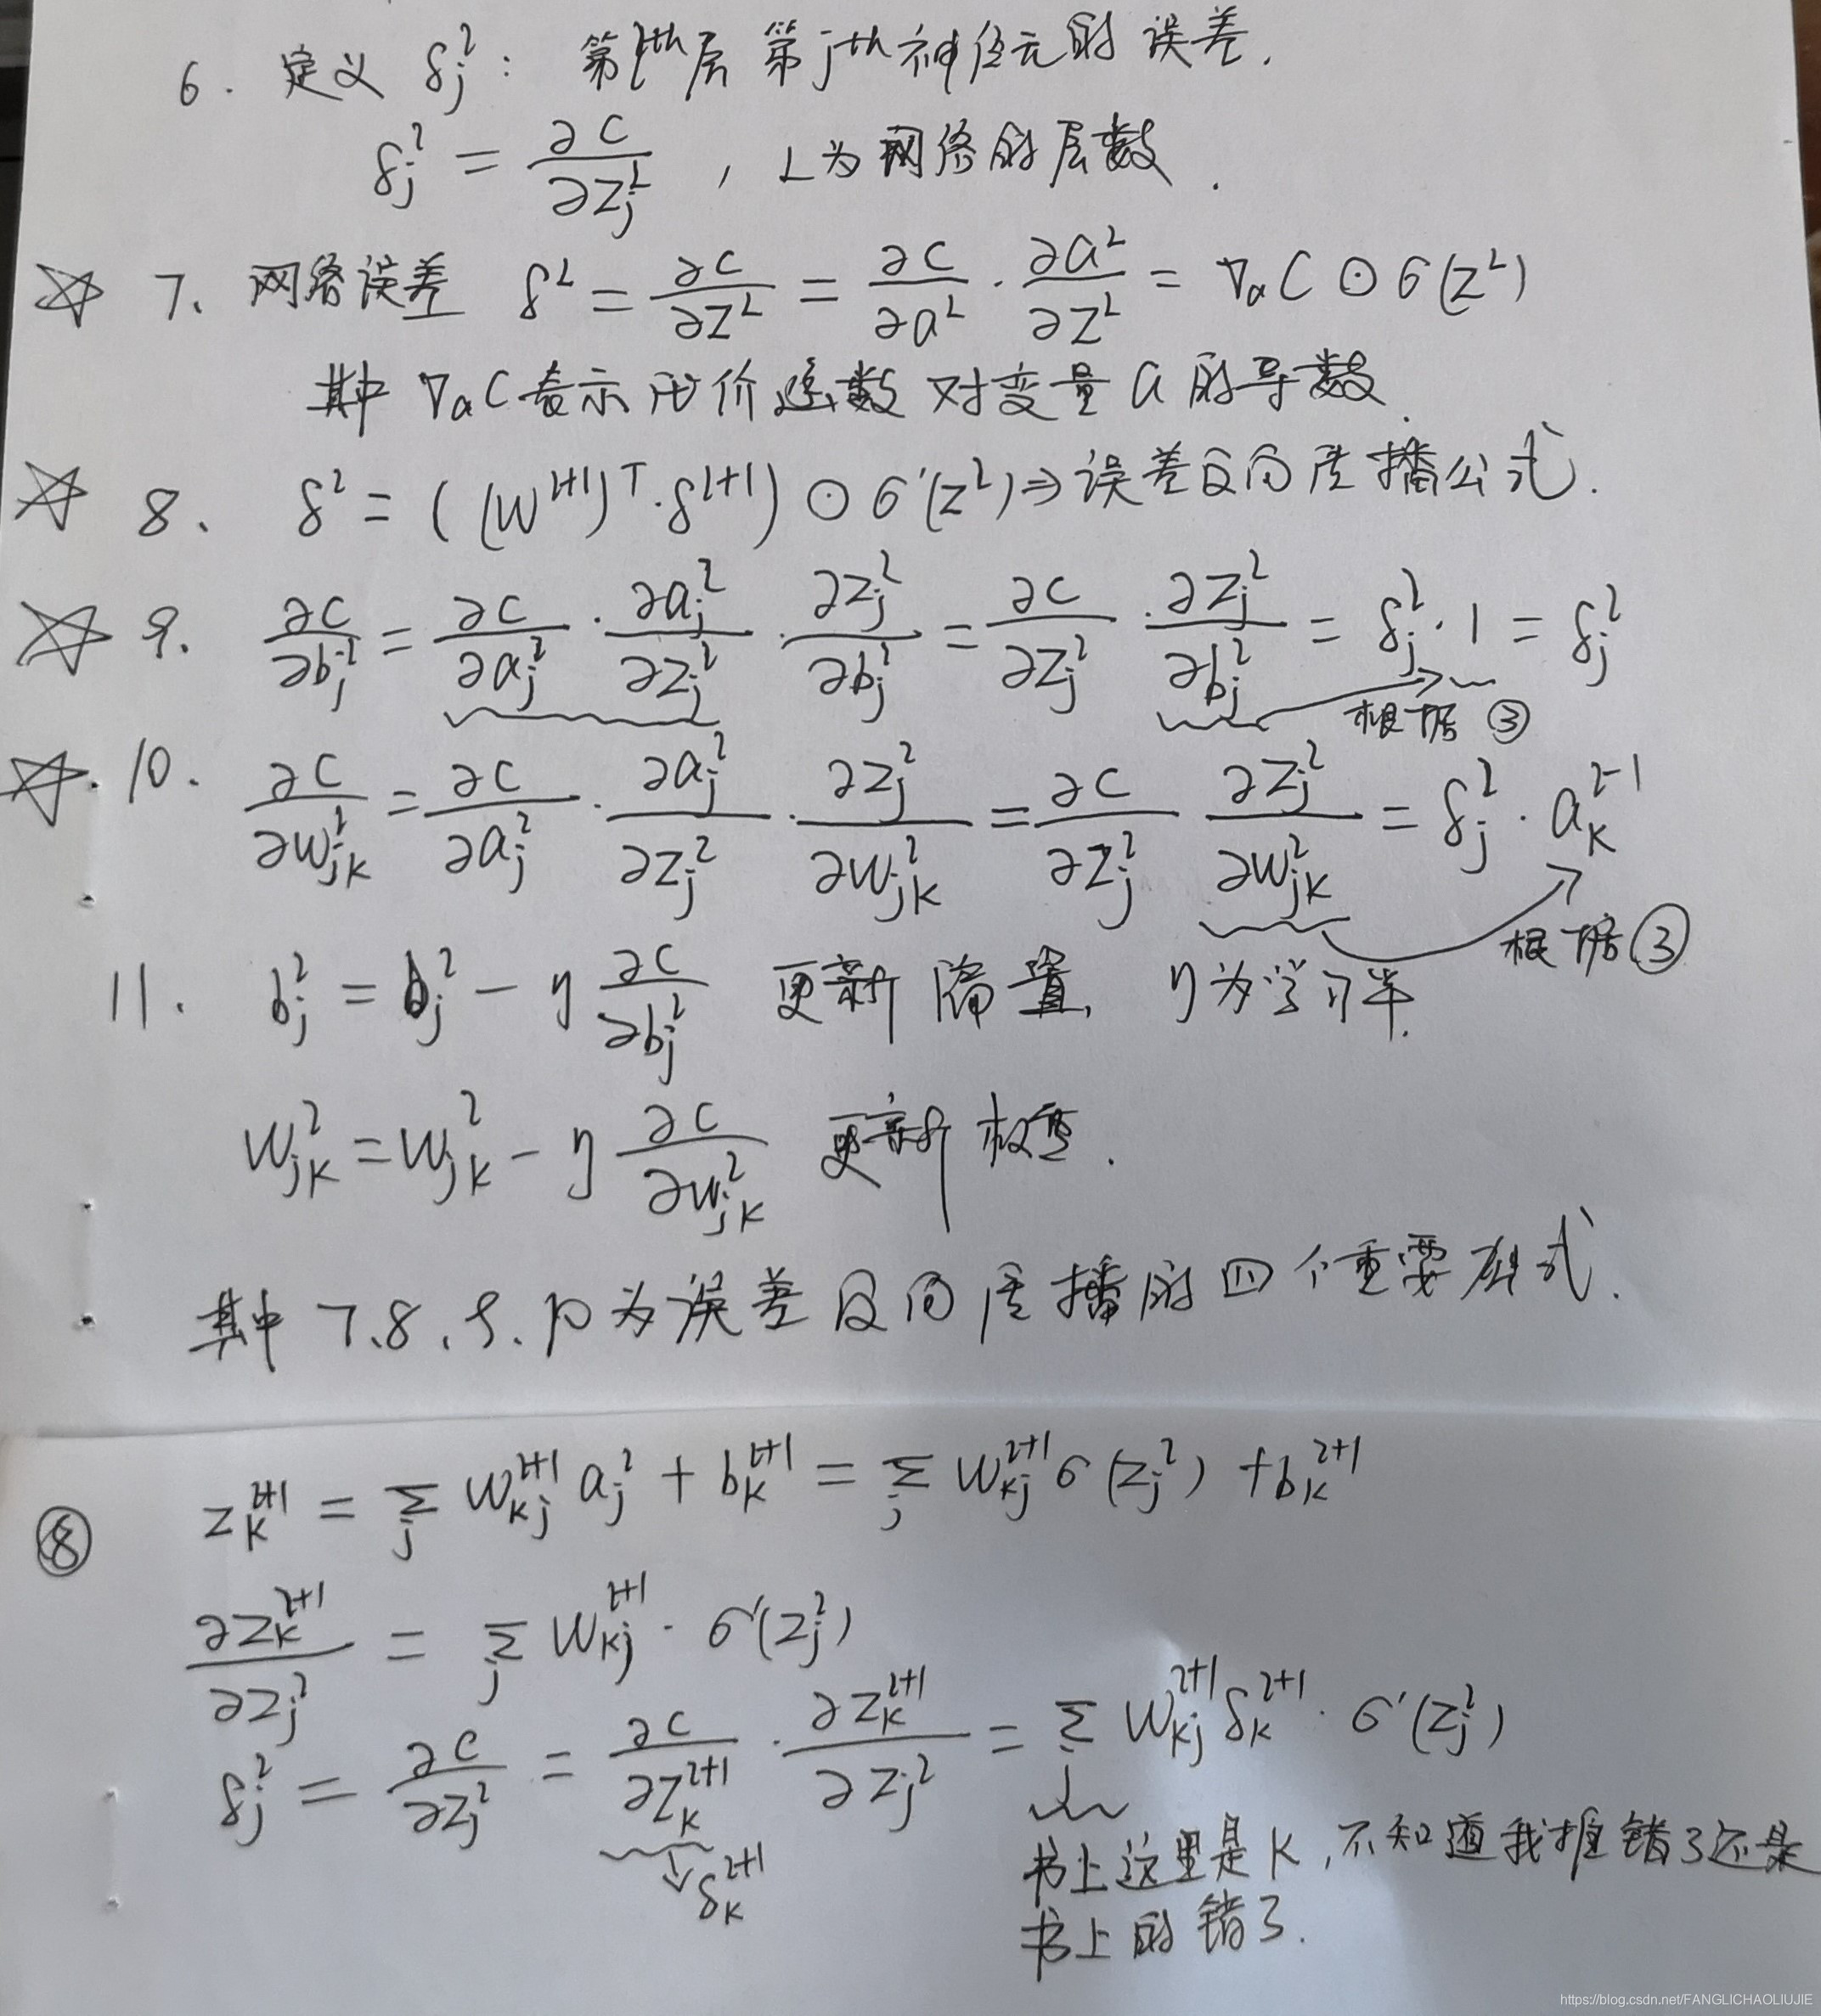 6. 定义 δ_j^l : 第l^th层 第j^th神经元的误差.
δ_j^l = ∂C/∂z_j^L , L为网络的层数.
☆ 7. 网络误差 δ^L = ∂C/∂z^L = ∂C/∂a^L · ∂a^L/∂z^L = ∇_a C ⊙ σ(z^L)
其中 ∇_a C 表示代价函数对变量 a 的导数.
☆ 8. δ^l = ((w^{l+1})^T · δ^{l+1}) ⊙ σ'(z^l) ⇒ 误差反向传播公式.
☆ 9. ∂C/∂b_j^l = ∂C/∂a_j^l · ∂a_j^l/∂z_j^l · ∂z_j^l/∂b_j^l = ∂C/∂z_j^l · ∂z_j^l/∂b_j^l = δ_j^l · 1 = δ_j^l
根据 ③
☆. 10. ∂C/∂w_jk^l = ∂C/∂a_j^l · ∂a_j^l/∂z_j^l · ∂z_j^l/∂w_jk^l = ∂C/∂z_j^l ∂z_j^l/∂w_jk^l = δ_j^l · a_k^{l-1}
根据 ③
11. b_j^l = b_j^l - η ∂C/∂b_j^l 更新偏置, η为学习率.
w_jk^l = w_jk^l - η ∂C/∂w_jk^l 更新权重.
其中 7.8.9.10为误差反向传播的四个重要公式.
⑧ z_k^{l+1} = Σ_j w_kj^{l+1} a_j^l + b_k^{l+1} = Σ_j w_kj^{l+1} σ(z_j^l) + b_k^{l+1}
∂z_k^{l+1}/∂z_j^l = Σ_j w_kj^{l+1} · σ'(z_j^l)
δ_j^l = ∂C/∂z_j^l = ∂C/∂z_k^{l+1} · ∂z_k^{l+1}/∂z_j^l = Σ_j w_kj^{l+1} δ_k^{l+1} · σ'(z_j^l)
↓ δ_k^{l+1}
书上这里是K,不知道我推错了还是
书上的错了.
https://blog.csdn.net/FANGLICHAOLIUJIE